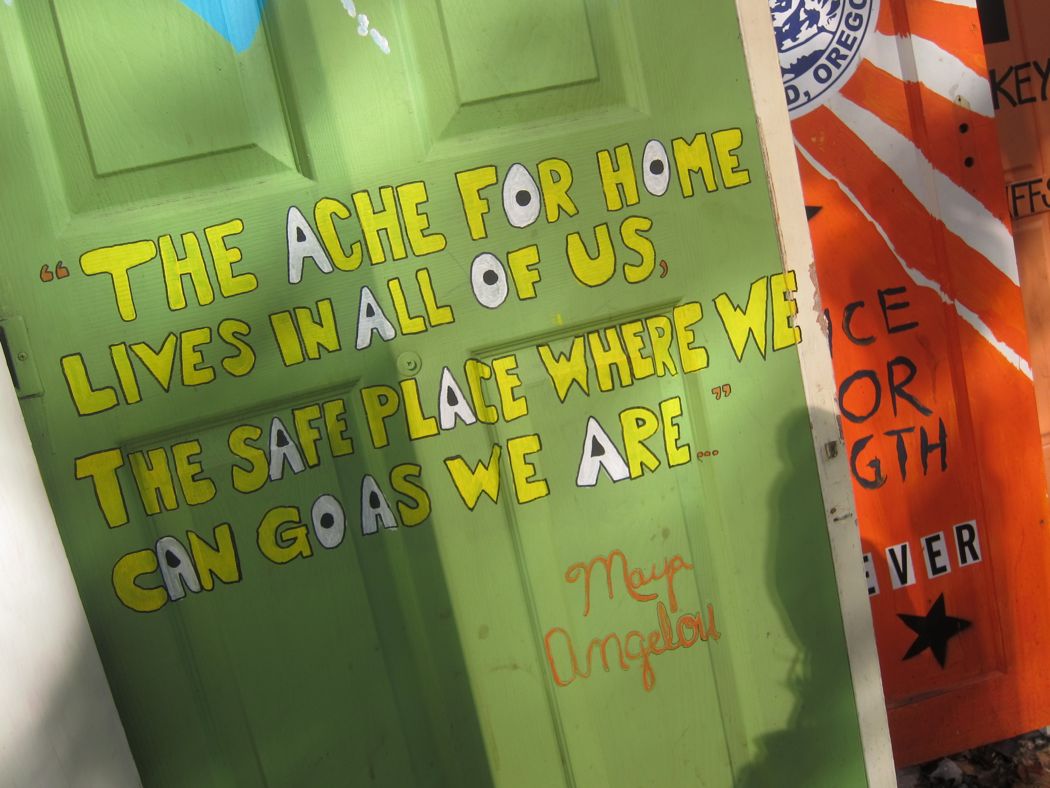 “THE ACHE FOR HOME
LIVES IN ALL OF US,
THE SAFE PLACE WHERE WE
CAN GO AS WE ARE...”
Maya
Angelou
D, OREGO
ICE
OR
GTH
EVER
KEY
FFS